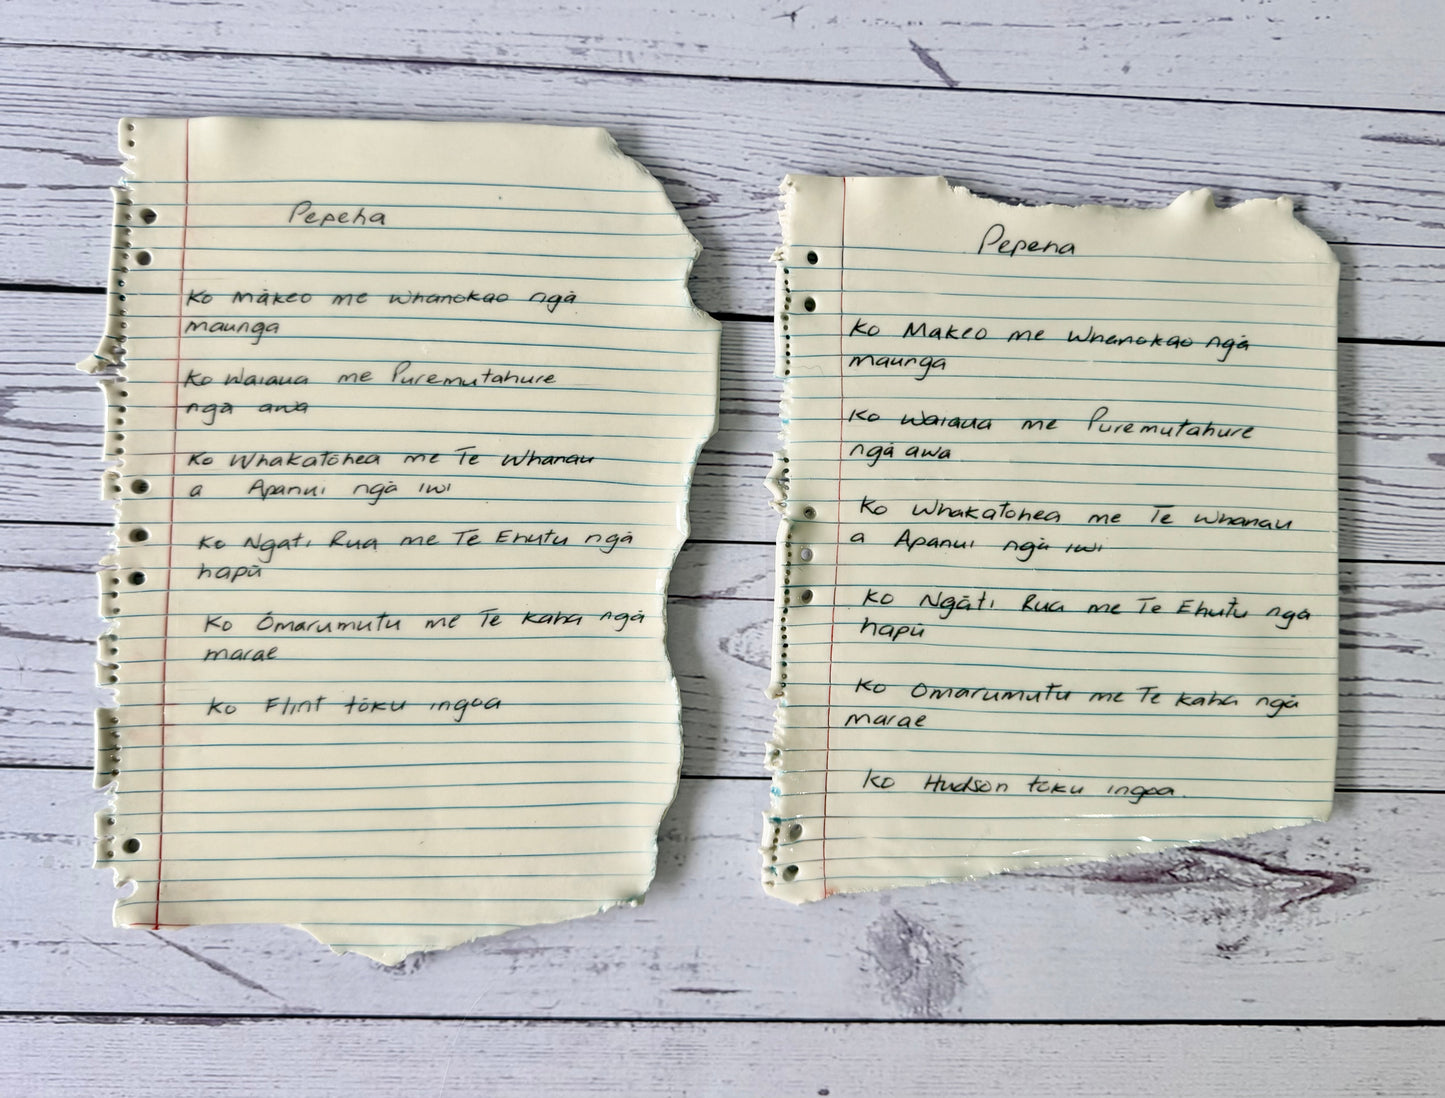 Pepeha
Ko Mākeo me Whanokao ngā
maunga
Ko Waiaua me Puremutahure
ngā awa
Ko Whakatōhea me Te Whanau
a Apanui ngā iwi
Ko Ngati Rua me Te Ehutu ngā
hapū
Ko Ōmarumutu me Te Kaha ngā
marae
Ko Flint tōku ingoa
Pepeha
Ko Makeo me Whanokao ngā
maunga
Ko Waiaua me Puremutahure
ngā awa
Ko Whakatōhea me Te Whanau
a Apanui ngā iwi
Ko Ngāti Rua me Te Ehutu ngā
hapū
Ko Omarumutu me Te Kaha ngā
marae
Ko Hudson tōku ingoa.